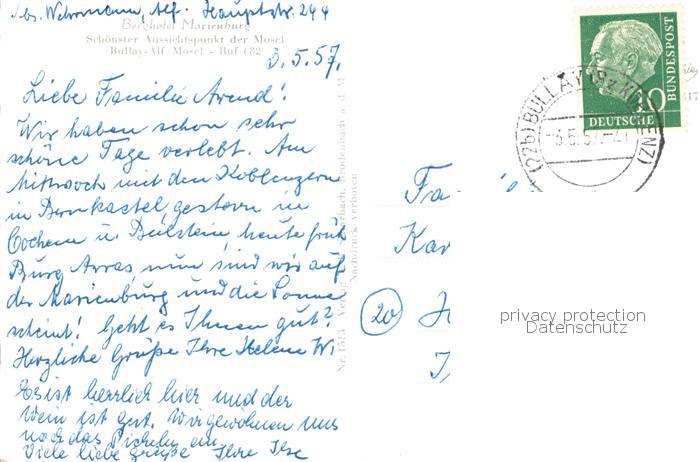 Wehrmann, Alf. Hauptstr. 244
Berghotel Marienburg
Schönster Aussichtspunkt der Mosel
Bullay-Alf (Mosel) - Ruf 682
3.5.57.
Liebe Familie Arend!
Wir haben schon sehr
schöne Tage verlebt. Am
Mittwoch mit den Koblenzern
in Bernkastel, gestern in
Cochem u. Beilstein, heute früh
Burg Arras, nun sind wir auf
der Marienburg und die Sonne
scheint! Geht es Ihnen gut?
Herzliche Grüße Ihre Helene W.
Es ist herrlich hier und der
Wein ist gut. Wir gewöhnen uns
noch das Picheln an.
Viele liebe Grüße Ihre Ilse
Nr. 1513
Nachdruck verboten
DEUTSCHE BUNDESPOST
(22b) BULLAY (Bz KOBLENZ)
Fa
Kar
(20) H
privacy protection
Datenschutz